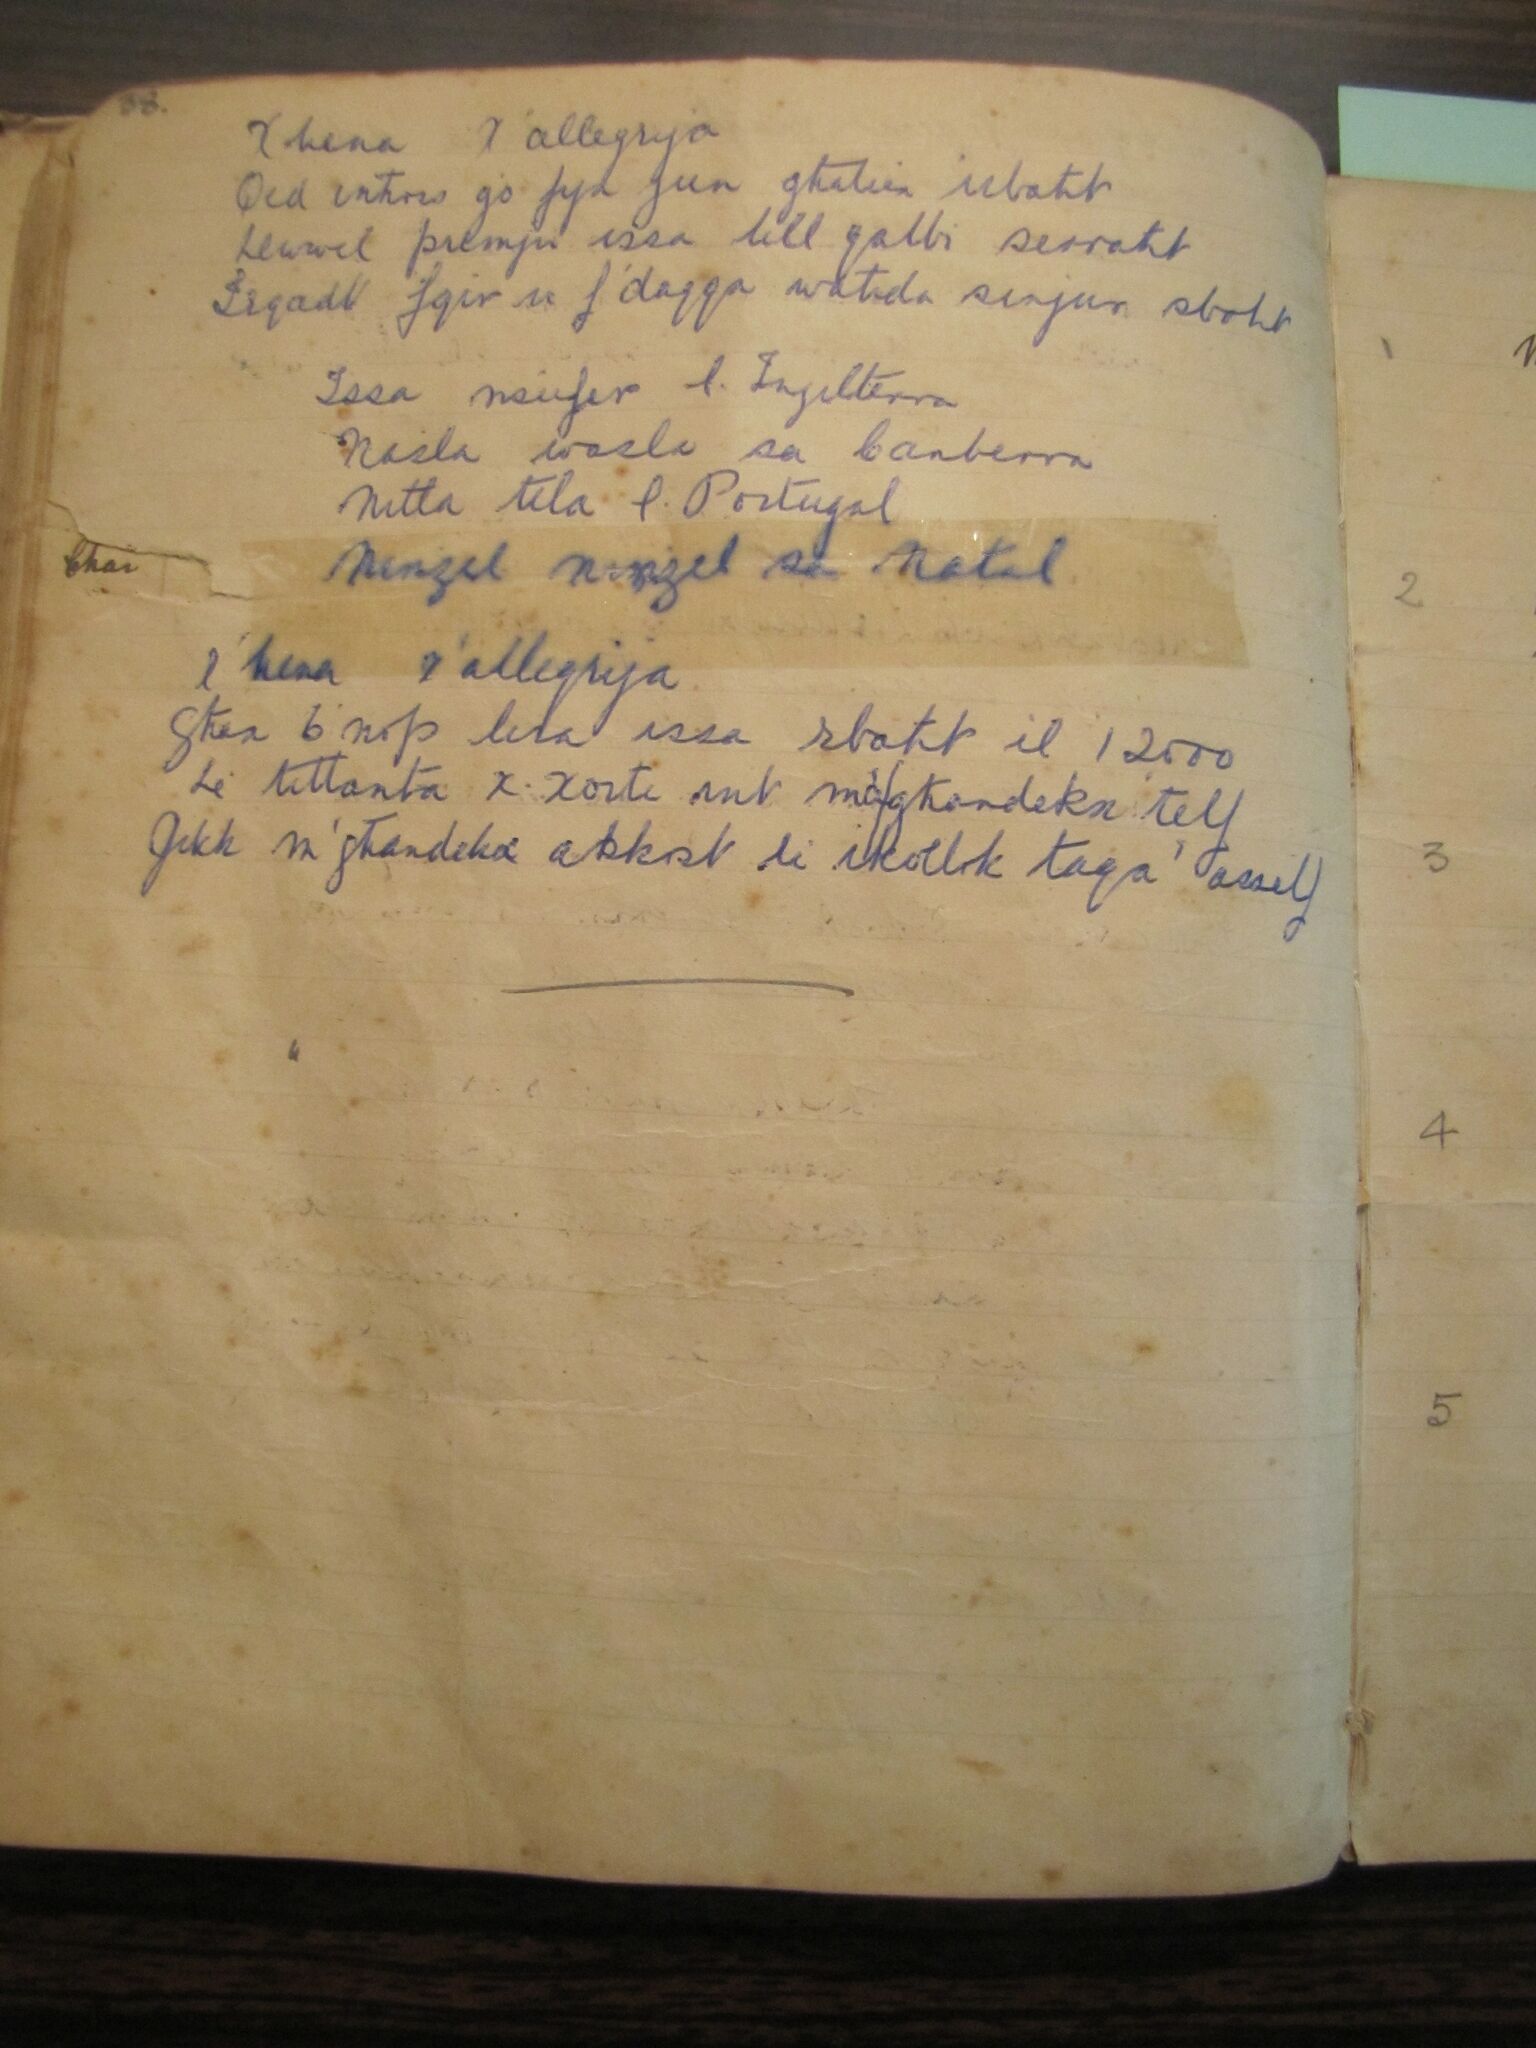 X'hena X'allegrija
Qed intir go fija jien ghaliex irbaht
Lewwel premju issa lill qalbi serraht
Irqadt fqir u f'daqqa wahda sinjur sbaht
Issa nsiefer l. Ingelterra
Nasla wasla sa Canberra
Nitla tila l. Portugal
Ninzel ninzel sa Natal
Chai
X'hena X'allegrija
Ghax b'nofs lira issa rbaht il 12000
Le tittanta x. xorti int m'ghandekx telf
Jekk m'ghandekx akkost li ikollok taqa' asself
2
3
4
5